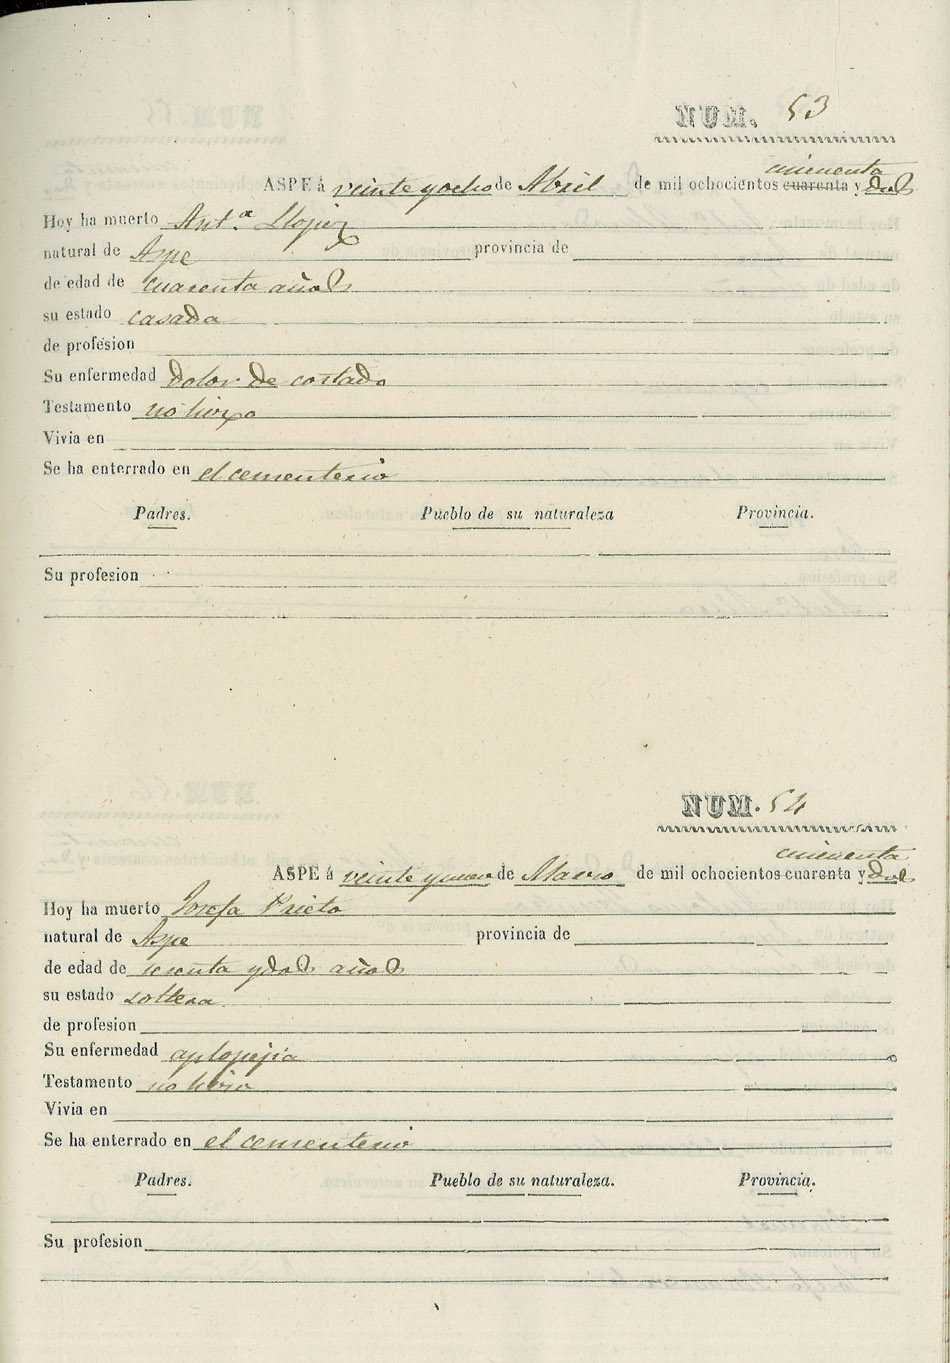 NUM. 53
cincuenta
ASPE á veinte y ocho de Abril de mil ochocientos cuarenta y dos
Hoy ha muerto Ant.ª Llopiz
natural de Aspe provincia de
de edad de cuarenta años
su estado casada
de profesion
Su enfermedad dolor de costado
Testamento no hizo
Vivia en
Se ha enterrado en el cementerio
Padres. Pueblo de su naturaleza Provincia.
Su profesion
NUM. 54
cincuenta
ASPE á veinte y nueve de de mil ochocientos cuarenta y dos
Hoy ha muerto Josefa Prieto
natural de Aspe provincia de
de edad de sesenta y dos años
su estado soltera
de profesion
Su enfermedad aplopejia
Testamento no hizo
Vivia en
Se ha enterrado en el cementerio
Padres. Pueblo de su naturaleza. Provincia.
Su profesion